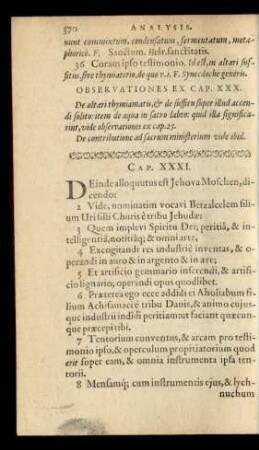 570 ANALYSIS.
nunt commixtum, condensatum, fermentatum, meta-
phoricè. F. Sanctum. Hebr. sanctitatis.
36 Coram ipso testimonio. Id est, in altari suf-
fitus, sive thymiaterio, de quo v. 1. F. Synecdoche generis.
OBSERVATIONES EX CAP. XXX.
De altari thymiamatis, & de suffitu super illud accen-
di solito: item de aqua in sacro labro: quid illa significa-
rint, vide observationes ex cap. 25.
De contributione ad sacrum ministerium vide ibid.
CAP. XXXI.
DEinde alloquutus est Jehova Moschen, di-
cendo:
2 Vide, nominatim vocavi Betzaleelem filium
Uri filii Churis è tribu Jehudæ:
3 Quem implevi Spiritu Dei; peritiâ, & in-
telligentiâ, notitiâq; & omni arte,
4 Excogitandi res industriè inventas, & o-
perandi in auro & in argento & in ære;
5 Et artificio gemmario inserendi, & artifi-
cio lignario; operandi opus quodlibet.
6 Præterea ego ecce addidi ei Aholiabum fili-
um Achisamaci è tribu Danis, & animo cujus-
que industrii indidi peritiam ut faciant quæcun-
que præcepi tibi.
7 Tentorium conventus, & arcam pro testi-
monio ipso, & operculum propitiatorium quod
erit super eam, & omnia instrumenta ipsa ten-
torii.
8 Mensamq; cum instrumentis ejus, & lych-
nuchum